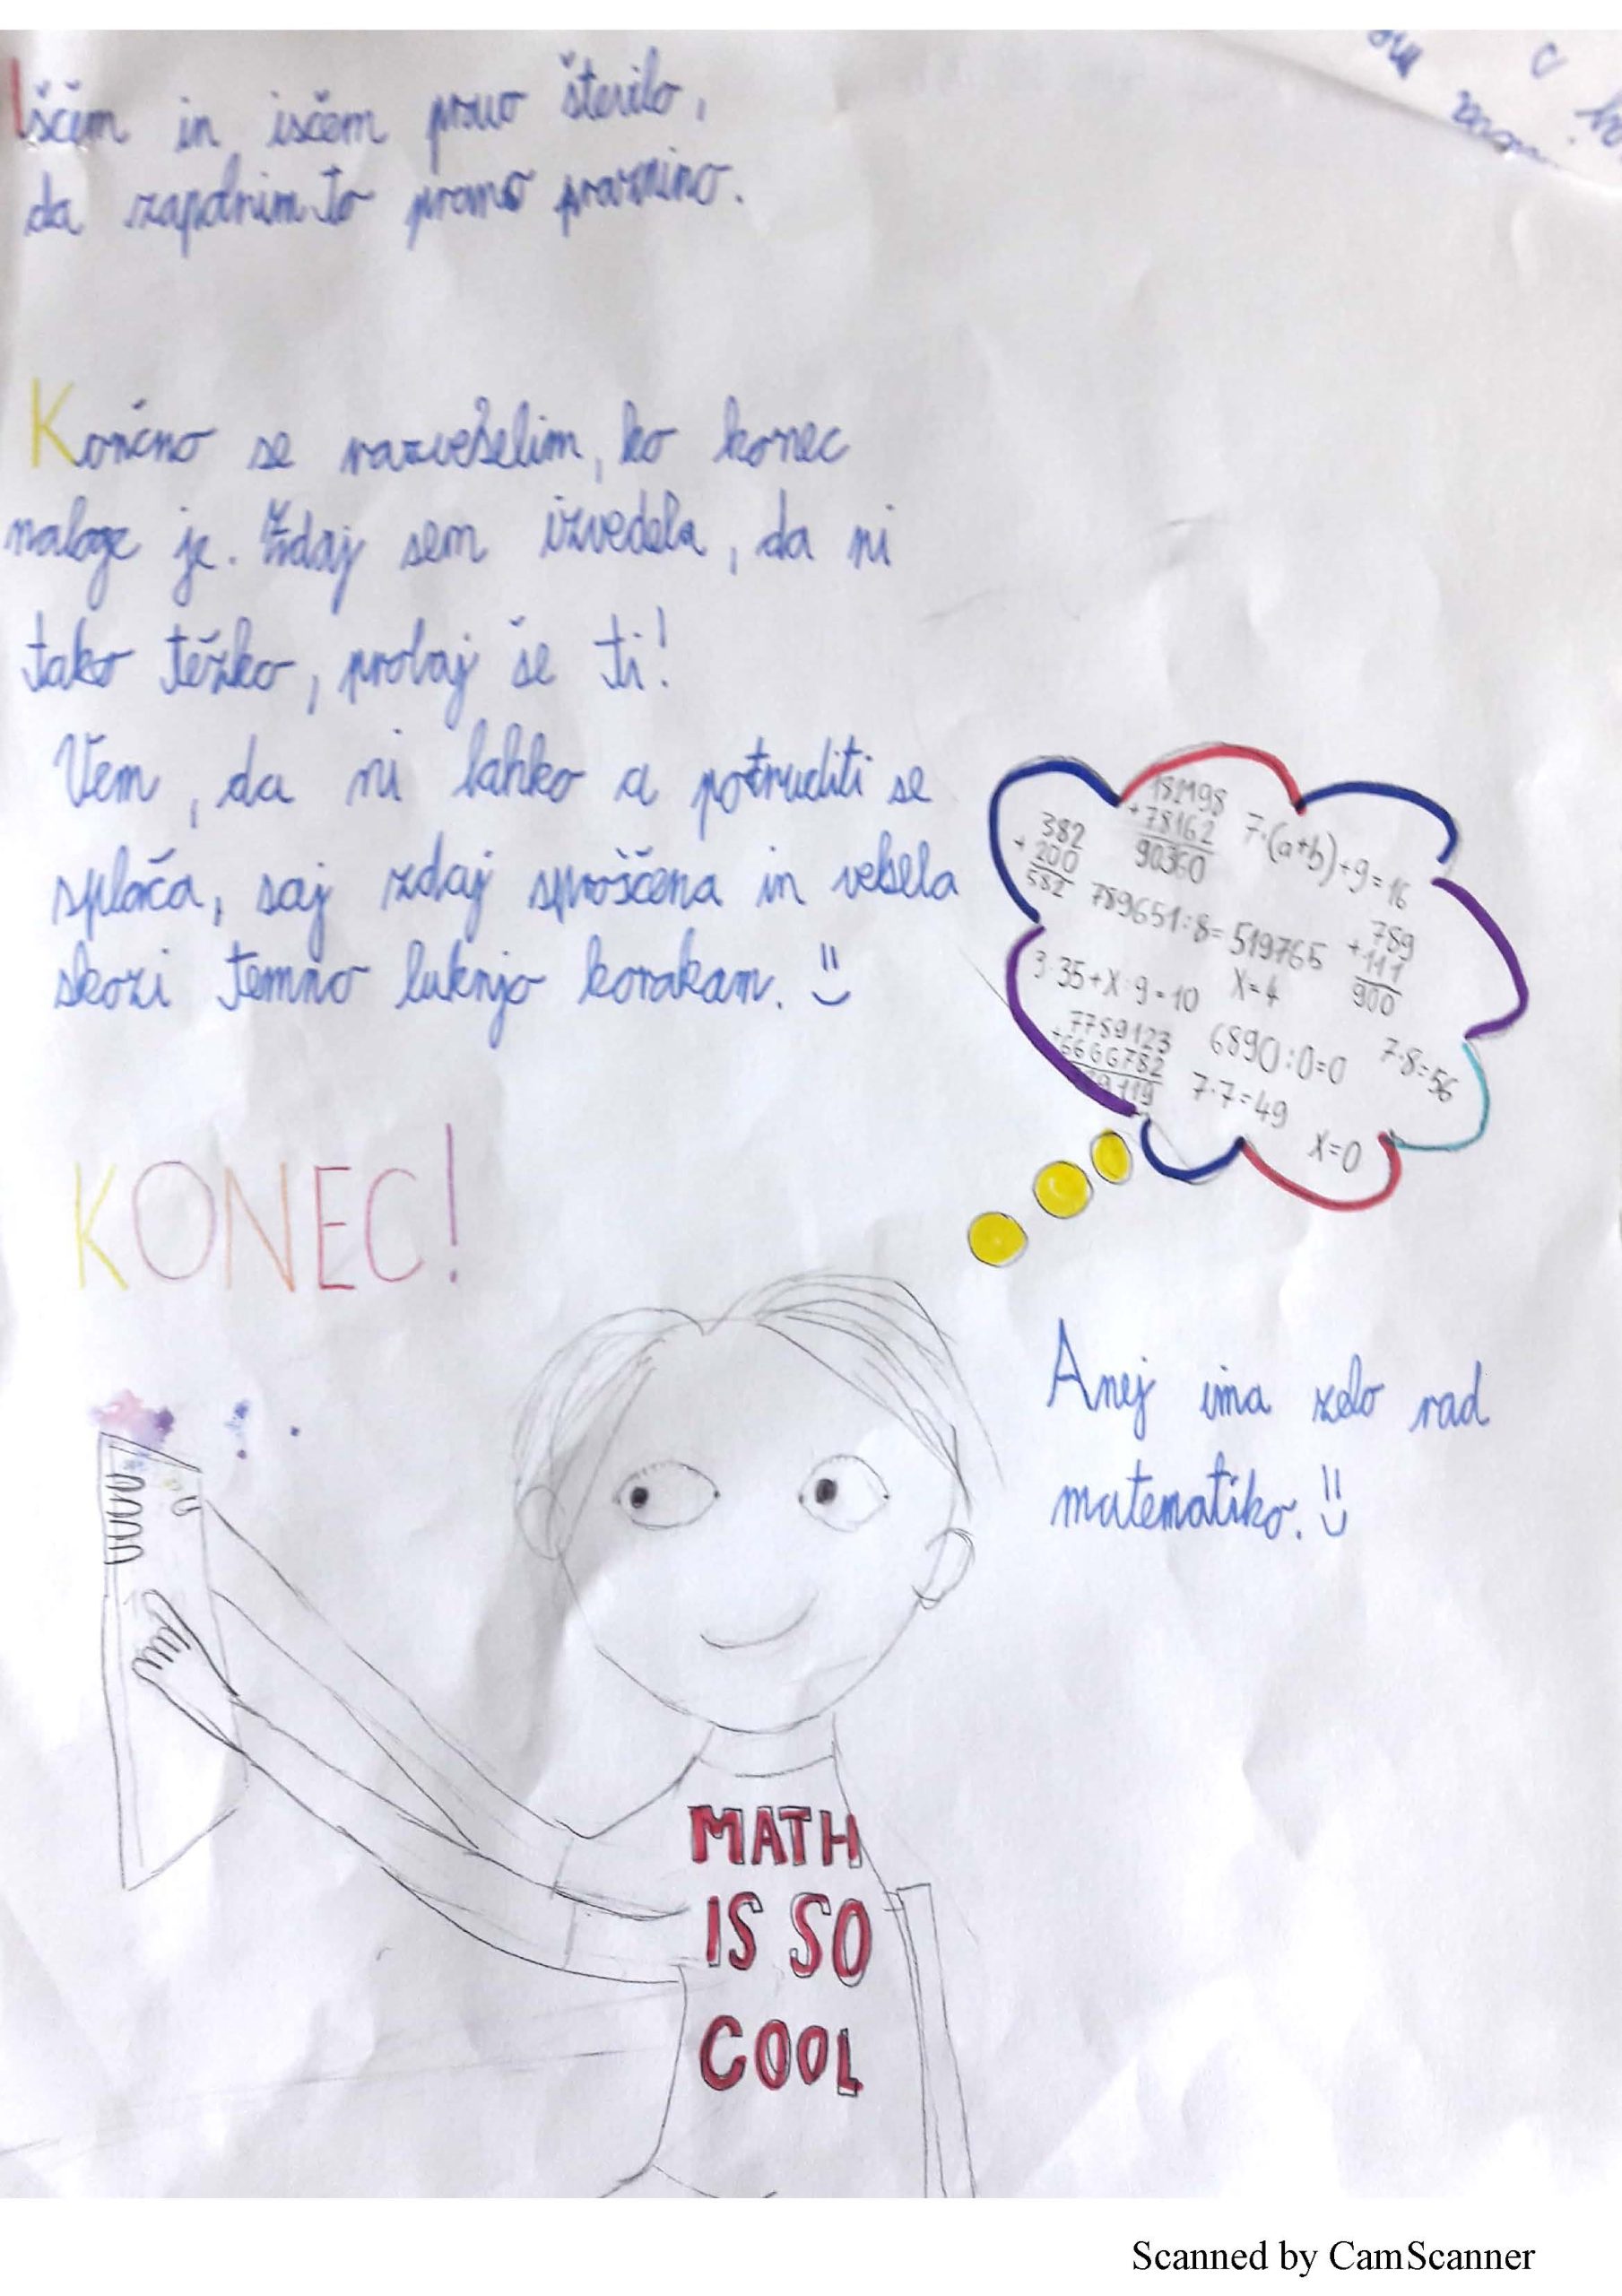 Iščem in isčem prvo število,
da zapolnim to praznino.
Končno se razveselim, ko konec
naloge je. Zdaj sem izvedela, da ni
tako težko, probaj še ti!
Vem, da ni lahko a potruditi se
splača, saj zdaj sproščena in vesela
skozi temno luknjo korakam.
382
+200
582
+78162
90360
7·(a+b)+9=16
789651:8=519765
789
+111
900
3·35+x·9=10
x=4
7789123
+6666782
6890:0=0
7·8=56
7·7=49
x=0
KONEC!
Anej ima zelo rad
matematiko.
MATH
IS SO
COOL
Scanned by CamScanner